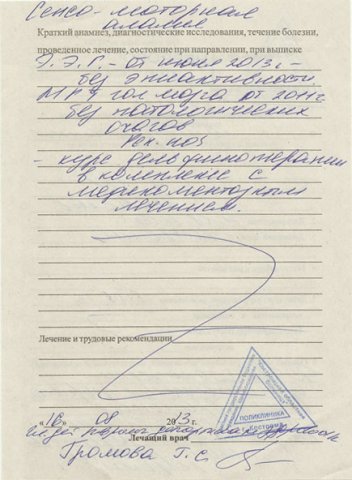 Сенсо-моторная
алалия
Краткий анамнез, диагностические исследования, течение болезни,
проведенное лечение, состояние при направлении, при выписке
Э.Э.Г. - от июня 2013г. -
без эпиактивности.
МРТ гол мозга от 2011г
без патологических
очагов
- курс дельфинотерапии
в комплексе с
медикоментозным
лечением.
Лечение и трудовые рекомендации
"16" 08 2013 г.
Лечащий врач
Громова Г.С.
ПОЛИКЛИНИКА
г. Кострома